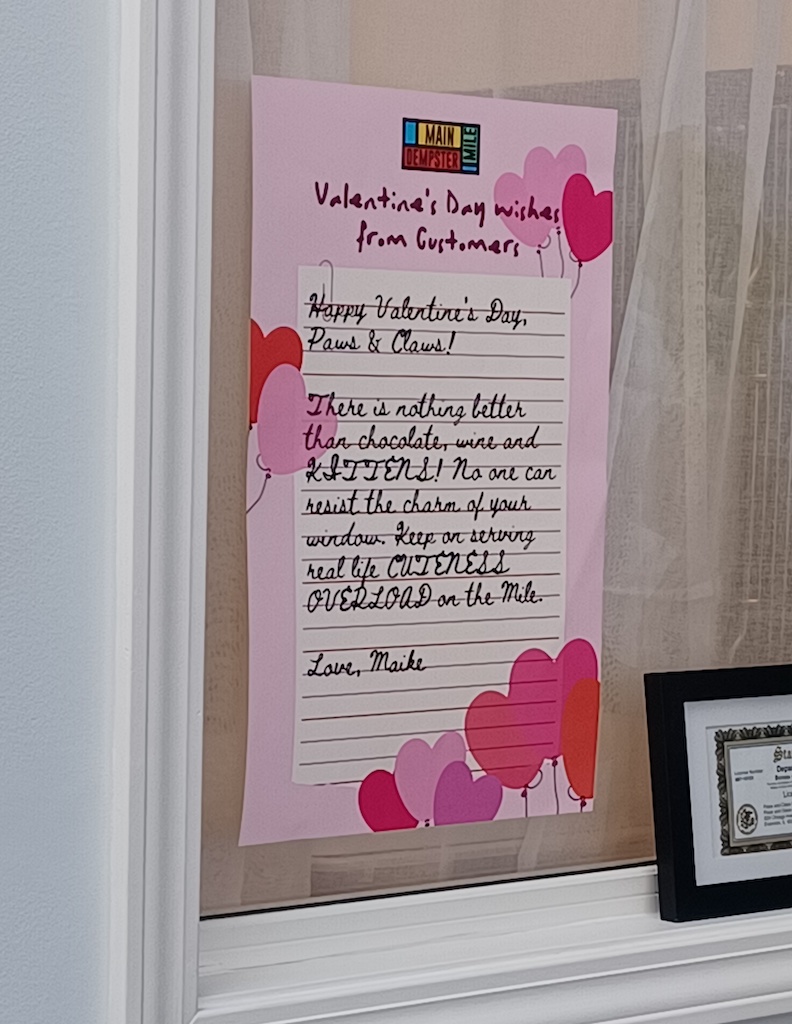 MAIN
DEMPSTER
MILE
Valentine's Day wishes
from Customers
Happy Valentine's Day,
Paws & Claws!
There is nothing better
than chocolate, wine and
KITTENS! No one can
resist the charm of your
window. Keep on serving
real life CUTENESS
OVERLOAD on the Mile.
Love, Maike